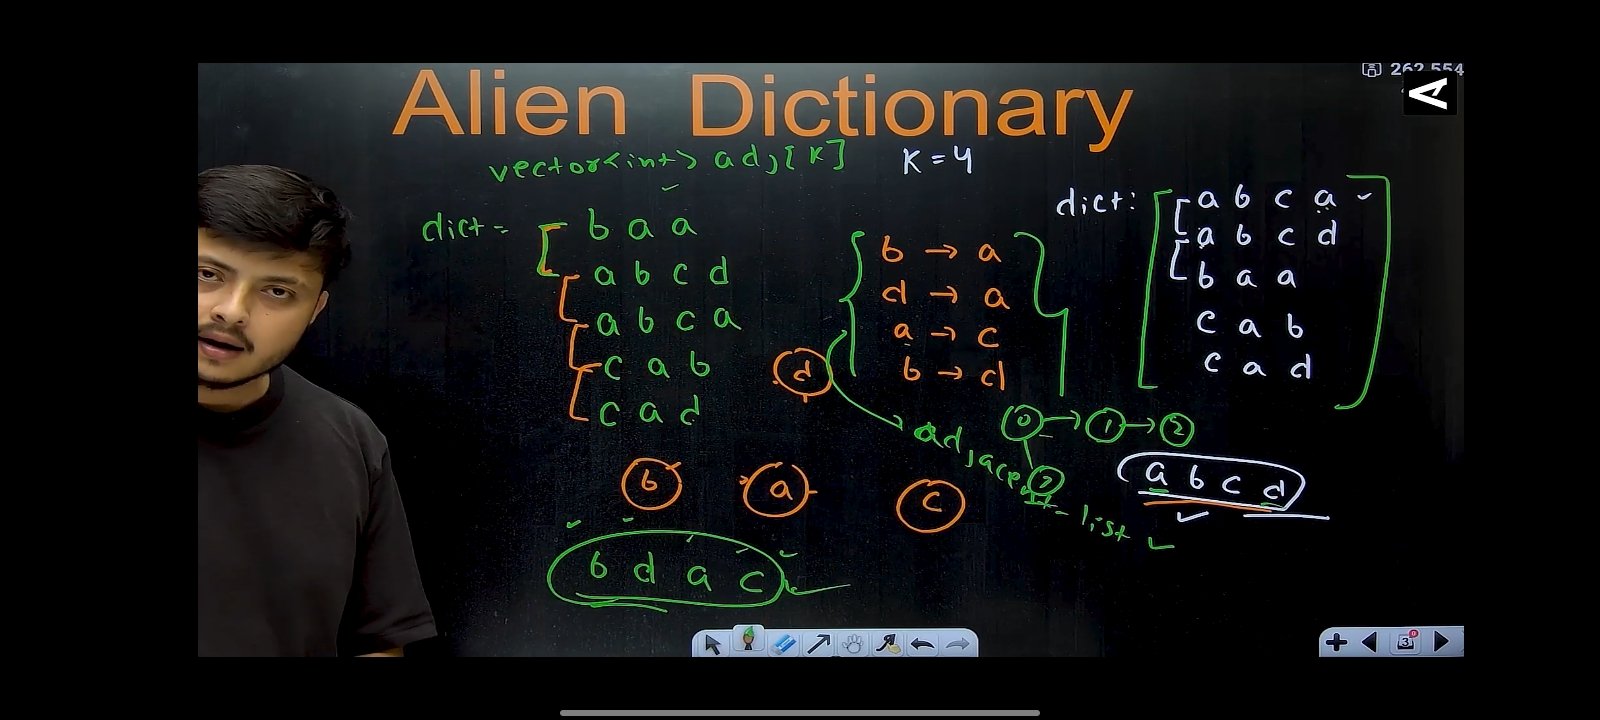 262,554
Alien Dictionary
vector<int> adj[K]
K = 4
dict =
b a a
a b c d
a b c a
c a b
c a d
b → a
d → a
a → c
b → d
dict:
a b c a
a b c d
b a a
c a b
c a d
d
b
a
c
0 → 1 → 2
adjacent - list
a b c d
b d a c
3